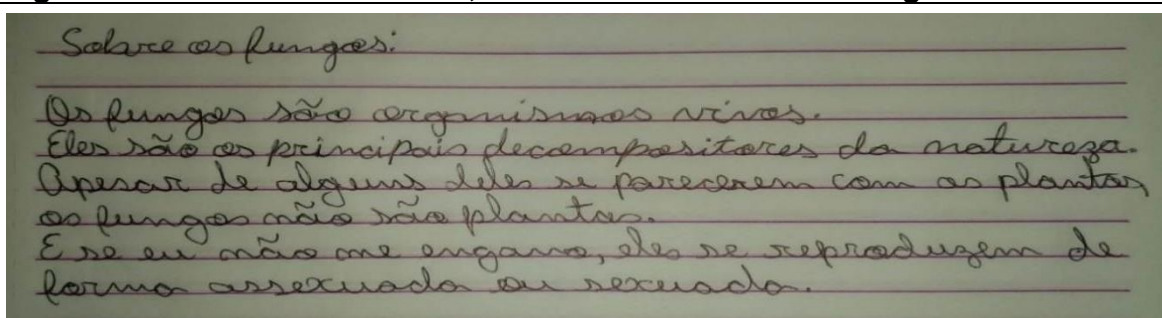 Sobre os fungos:
Os fungos são organismos vivos.
Eles são os principais decompositores da natureza.
Apesar de alguns deles se parecerem com as plantas,
os fungos não são plantas.
E se eu não me engano, eles se reproduzem de
forma assexuada ou sexuada.